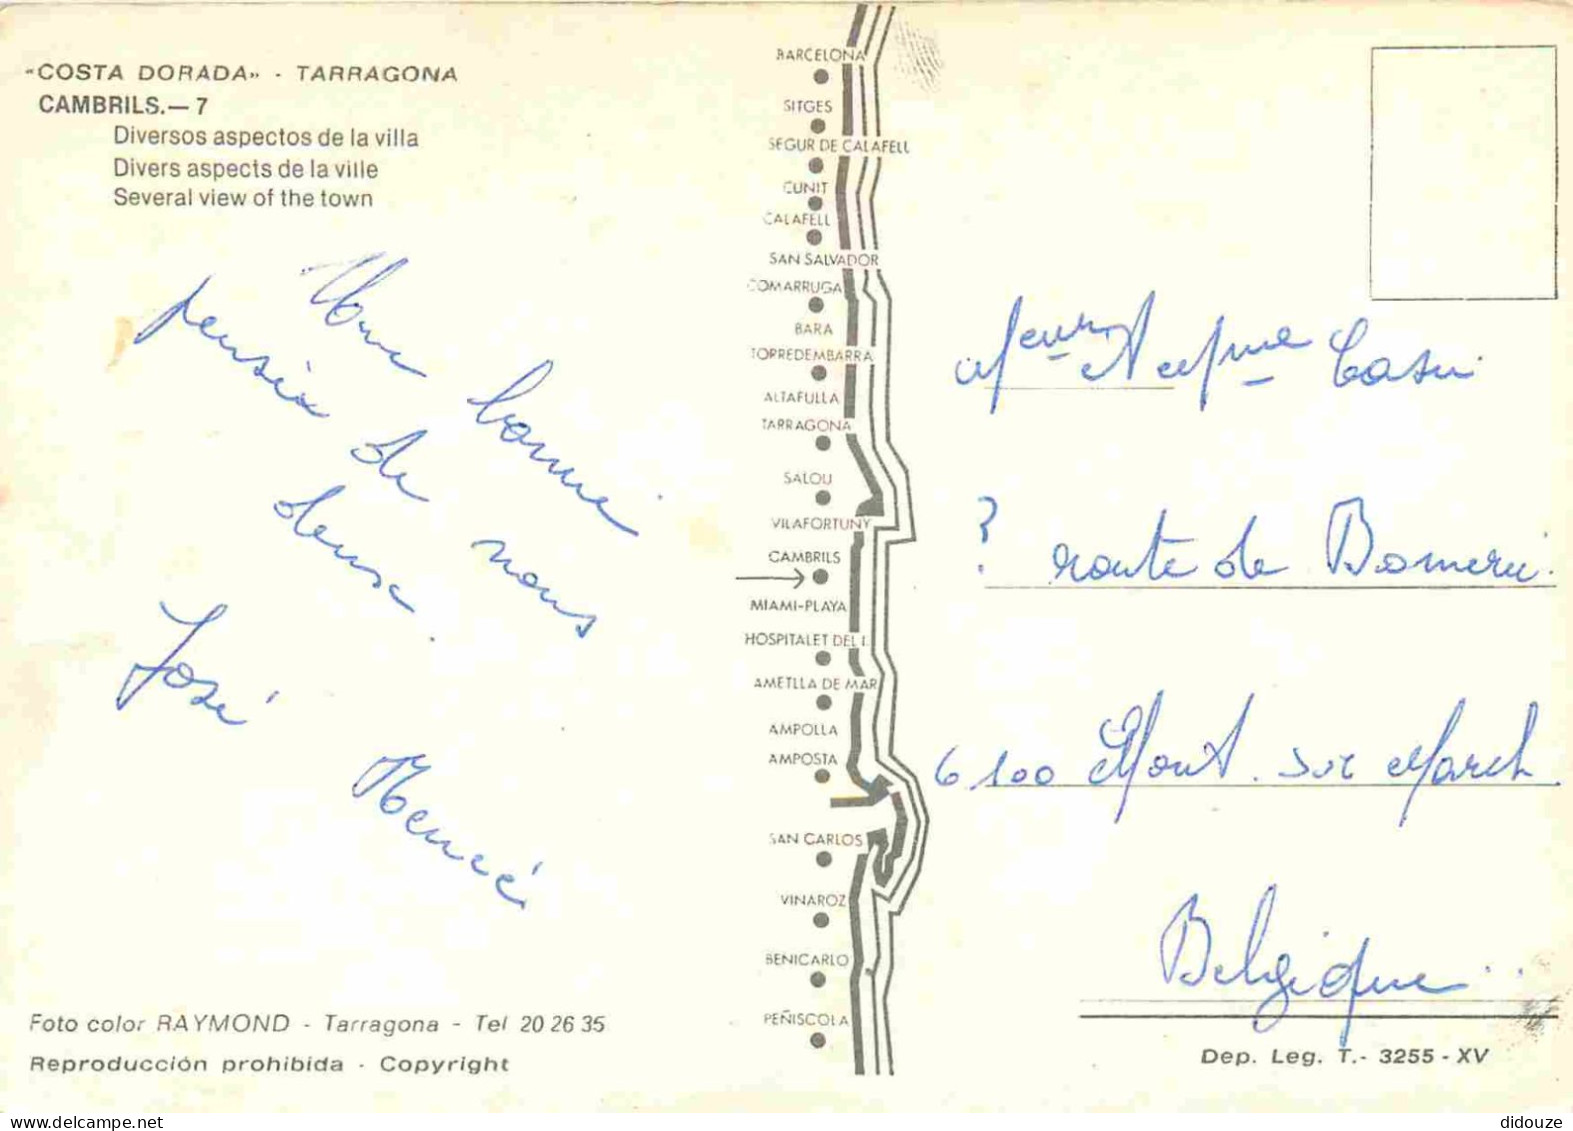 «COSTA DORADA» - TARRAGONA
CAMBRILS.— 7
Diversos aspectos de la villa
Divers aspects de la ville
Several view of the town
Une bonne
pensée de nous
deux.
José Renée
Foto color RAYMOND - Tarragona - Tel 20 26 35
Reproducción prohibida - Copyright
BARCELONA
SITGES
SEGUR DE CALAFELL
CUNIT
CALAFELL
SAN SALVADOR
COMARRUGA
BARA
TORREDEMBARRA
ALTAFULLA
TARRAGONA
SALOU
VILAFORTUNY
CAMBRILS
MIAMI-PLAYA
HOSPITALET DEL I.
AMETLLA DE MAR
AMPOLLA
AMPOSTA
SAN CARLOS
VINAROZ
BENICARLO
PEÑISCOLA
Meur et Mme
? route de
6100 Mont. sur March
Belgique
Dep. Leg. T.- 3255 - XV
didouze